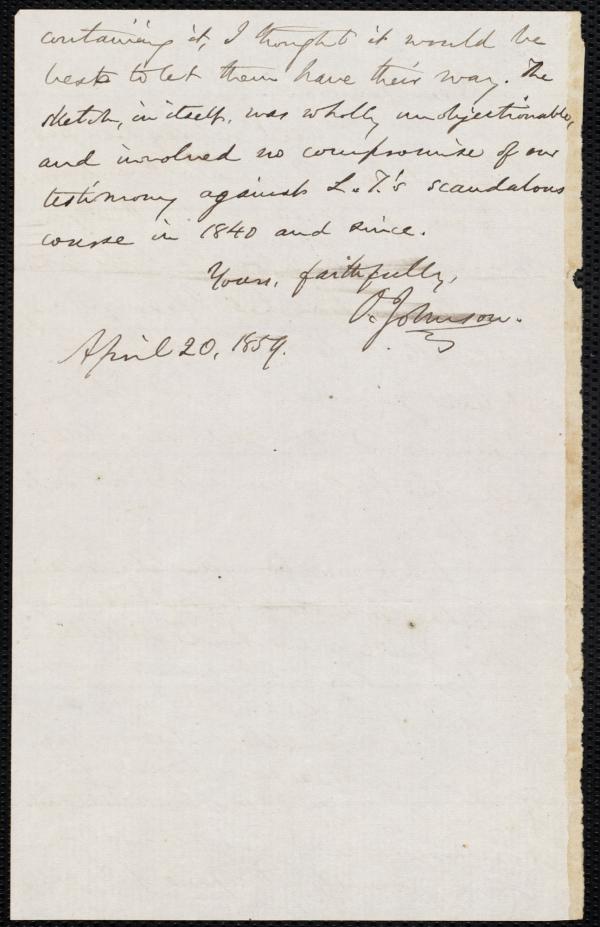 containing it, I thought it would be
best to let them have their way. The
sketch, in itself, was wholly unobjectionable,
and involved no compromise of our
testimony against L. T.'s scandalous
course in 1840 and since.
Yours, faithfully,
O. Johnson.
April 20, 1859.